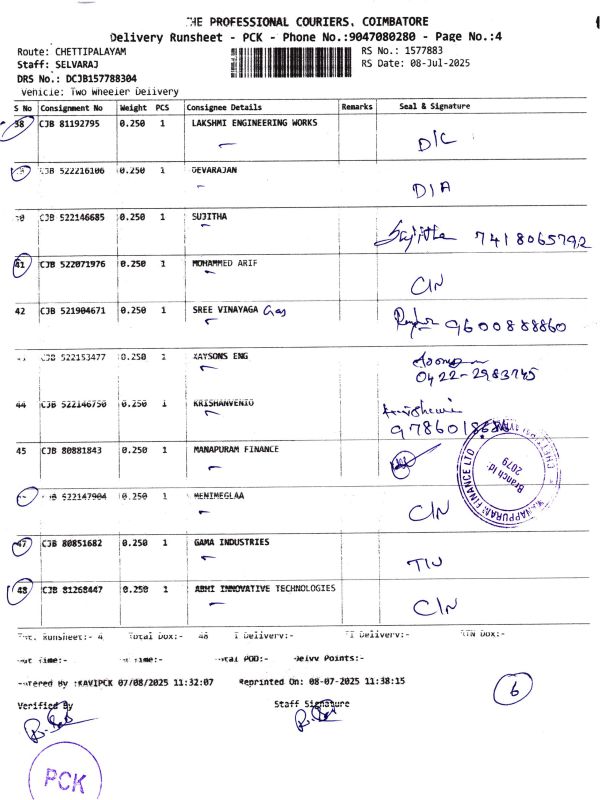 THE PROFESSIONAL COURIERS, COIMBATORE
Delivery Runsheet - PCK - Phone No.:9047080280 - Page No.:4
Route: CHETTIPALAYAM
RS No.: 1577883
Staff: SELVARAJ
RS Date: 08-Jul-2025
DRS No.: DCJB157788304
Vehicle: Two Wheeler Delivery
S No Consignment No Weight PCS Consignee Details Remarks Seal & Signature
38 CJB 81192795 0.250 1 LAKSHMI ENGINEERING WORKS D/C
CJB 522216106 0.250 1 DEVARAJAN D/A
CJB 522146685 0.250 1 SUJITHA Sujitha 7418065792
41 CJB 522071976 0.250 1 MOHAMMED ARIF C/N
42 CJB 521904671 0.250 1 SREE VINAYAGA Gas 9600888860
CJB 522153477 0.250 1 KAYSONS ENG
0422-2983745
44 CJB 522146750 0.250 1 KRISHANVENIO
45 CJB 80881843 0.250 1 MANAPURAM FINANCE
MANAPPURAM FINANCE LTD
Branch Id:
2079
CJB 522147904 0.250 1 MENIMEGLAA C/N
47 CJB 80851682 0.250 1 GAMA INDUSTRIES T/N
48 CJB 81268447 0.250 1 ABHI INNOVATIVE TECHNOLOGIES C/N
Tot. Runsheet:- 4 Total Dox:- 48 Delivery:- Delivery:- RTN Dox:-
Out Time:- Time:- Total POD:- Points:-
Entered By :KAVIPCK 07/08/2025 11:32:07 Reprinted On: 08-07-2025 11:38:15
6
Verified By Staff Signature
PCK